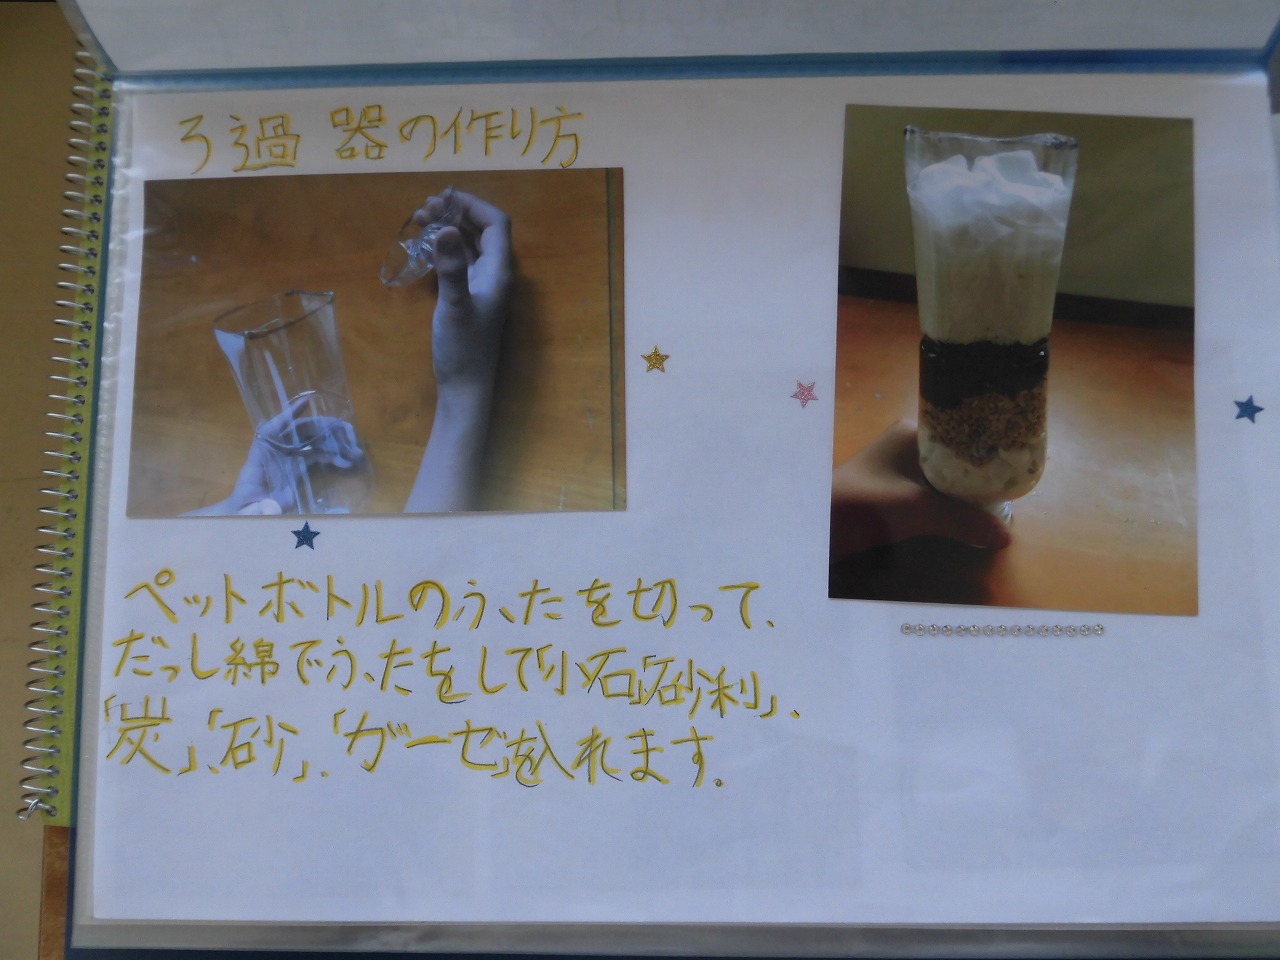 ろ過器の作り方
ペットボトルのふたを切って、
だっし綿でふたをして「小石」「砂利」、
「炭」、「砂」、「ガーゼ」を入れます。